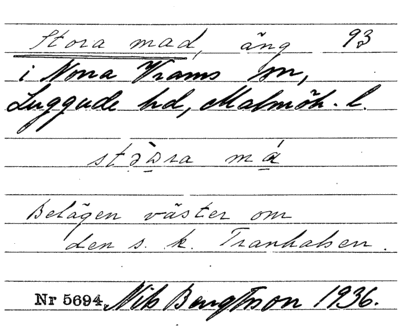 Stora mad, äng 93
i Norra Vrams sn,
Luggude hd, Malmöh. l.
stòra má
Belägen väster om
den s. k. Tranhalsen.
Nr 5694 Nils Bengtsson 1936.